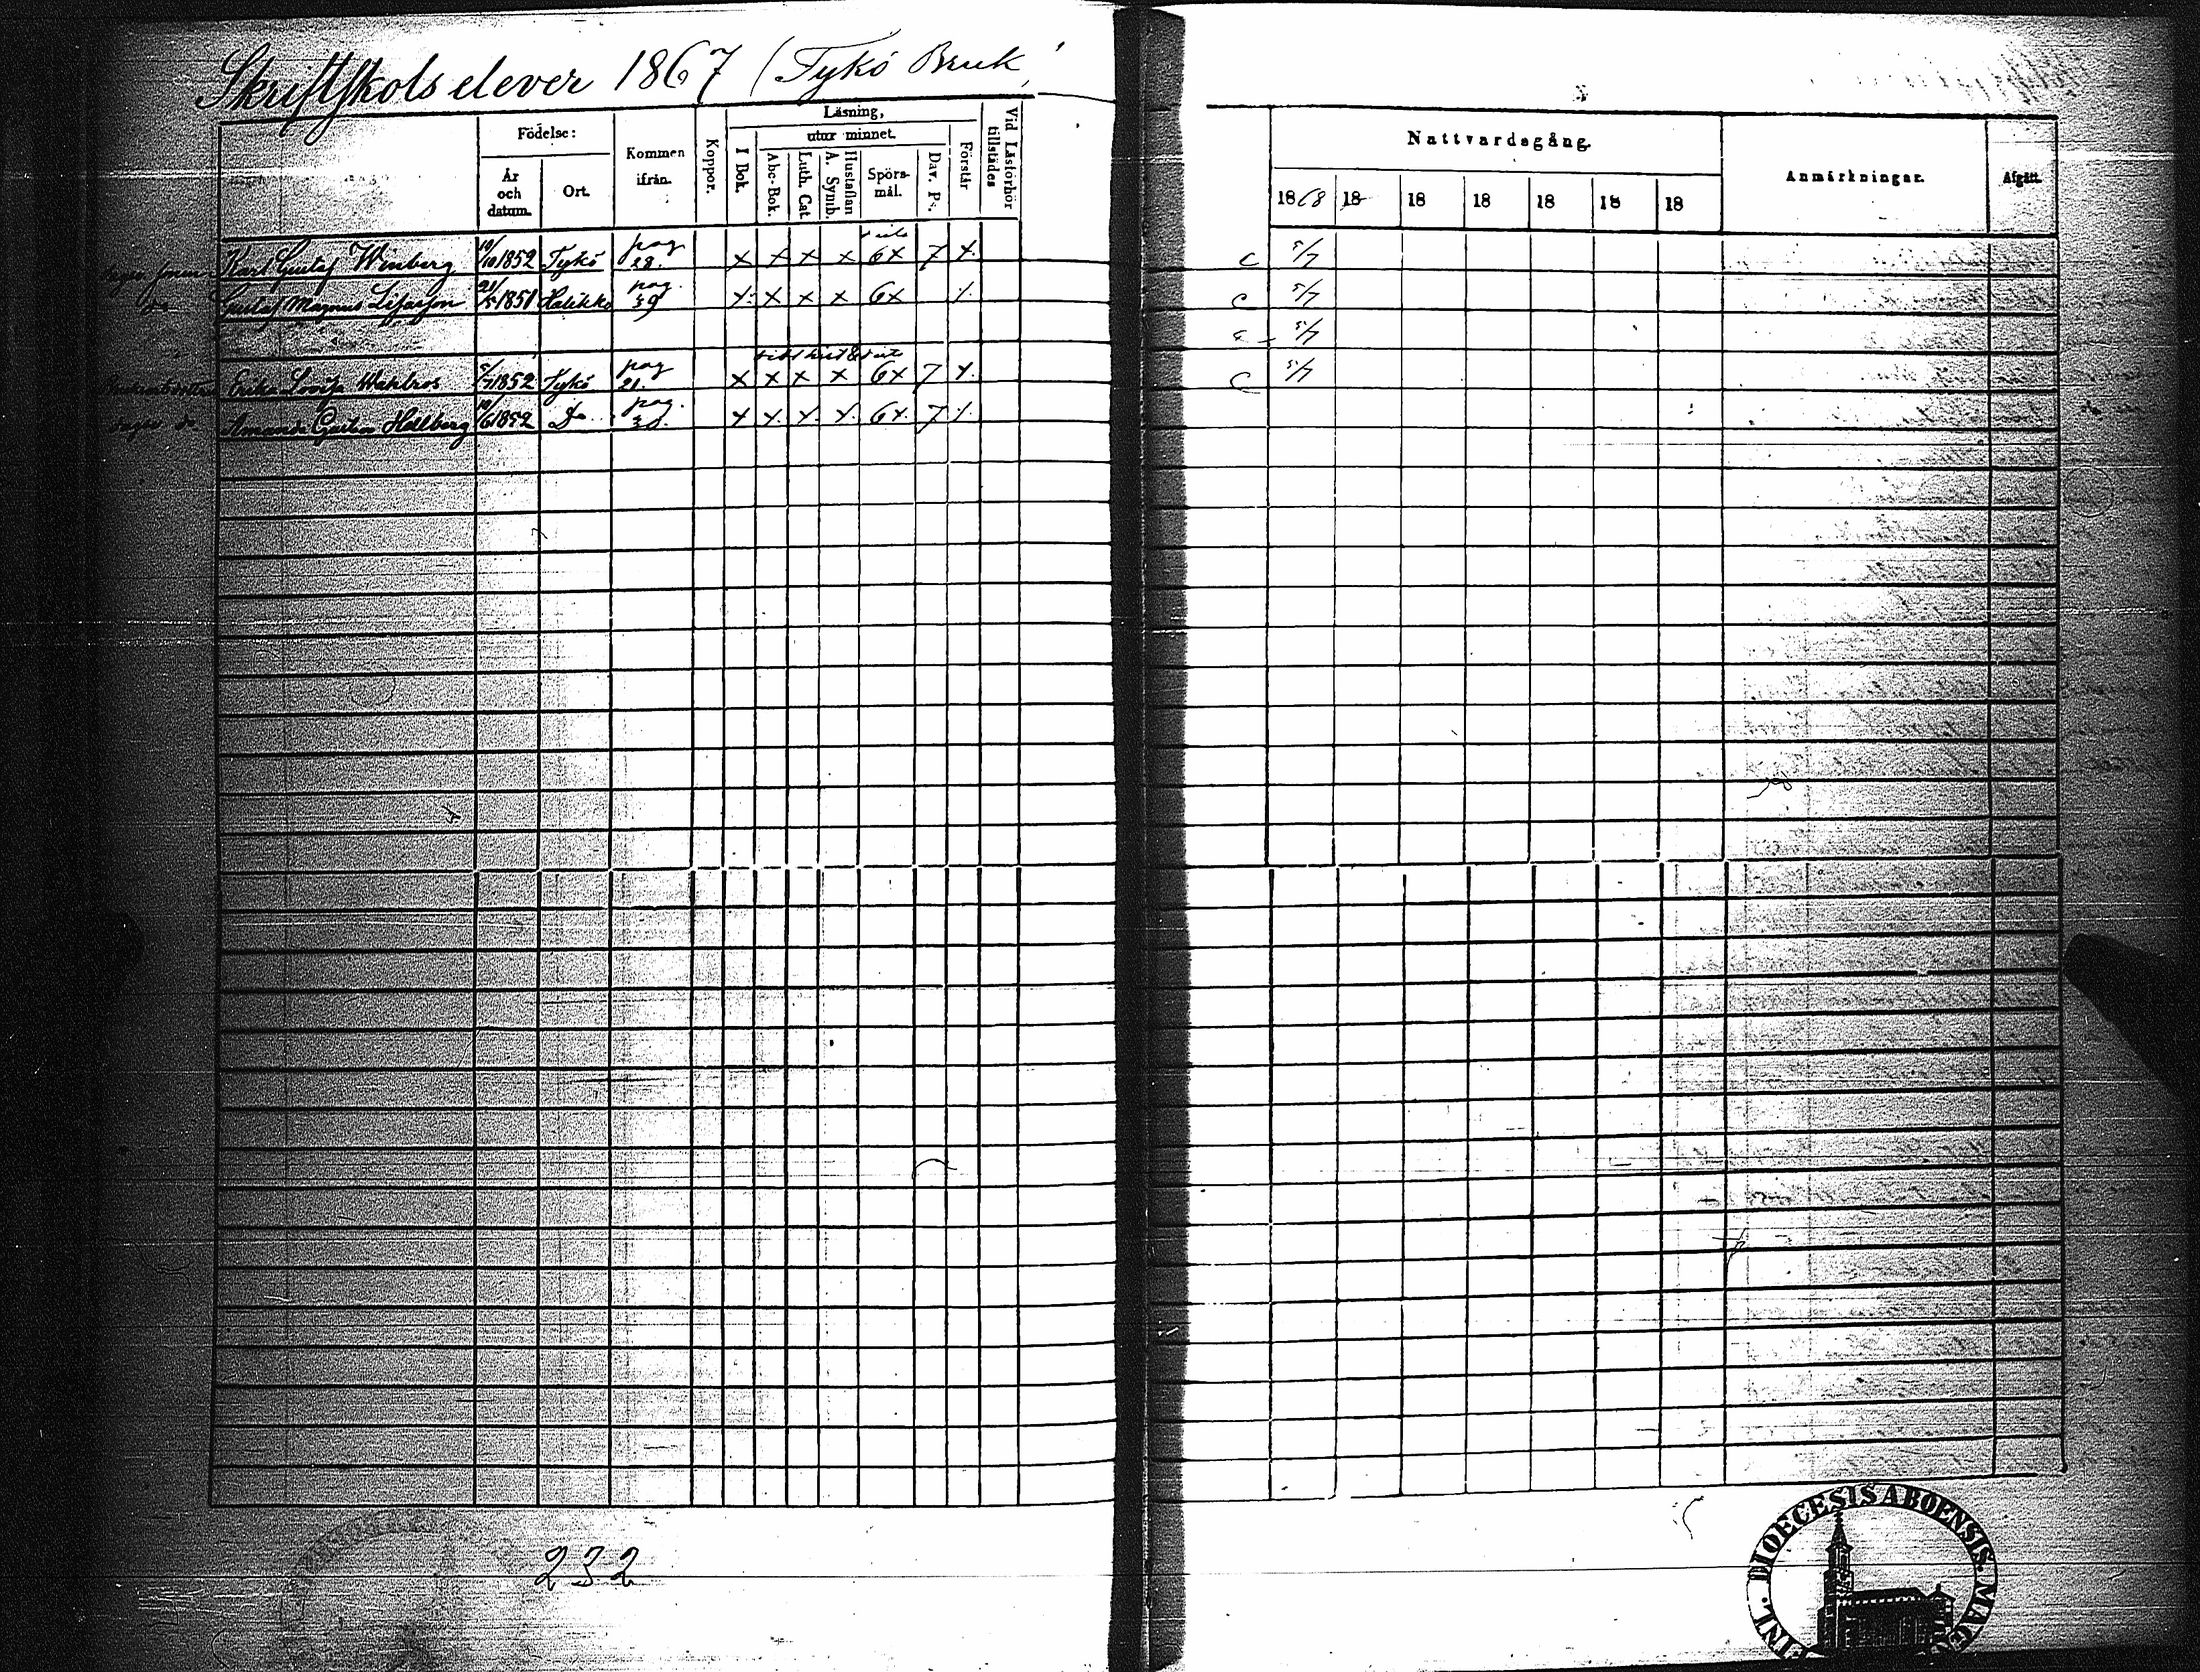 Skriftskols elever 1867 (Tykö Bruk)
Födelse:
År och datum.
Ort.
Kommen ifrån.
Koppor.
Läsning,
utur minnet.
I Bok.
Abc-Bok.
Luth. Cat.
Hustaflan A. Symb.
Spörsmål.
Dav. Ps.
Förstår
Vid Läsförhör tillstädes
Nattvardsgång.
1868 18 18 18 18 18 18
Anmärkningar.
Afgått.
Karl Gustaf Winberg 10/10 1852 Tykö pag 28. x x x x 6x 7 x. C 5/7
Gustaf Magnus 21/5 1851 Halikko pag. 39 x x x x 6x x. C 5/7
5/7
Erika Lovisa Wahlros 5/7 1852 Tykö pag 21. x x x x 6x 7 x. C 5/7
Amanda Hellberg 10/6 1852 Do pag. 30. x x. x. x. 6x. 7 x.
232
FINL. DIOECESIS ABOENSIS. MAG